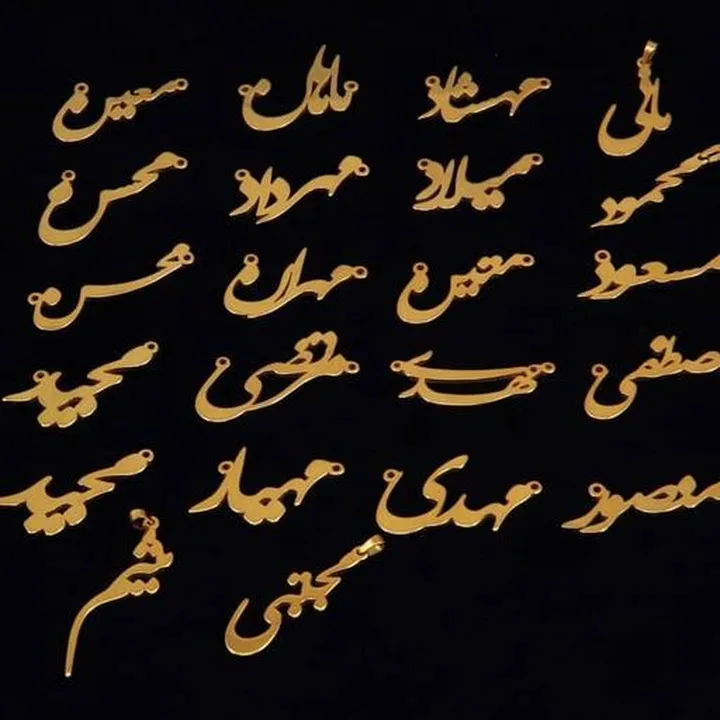 مانی مهشاد ماهان معین
محمود میلاد مهرداد محسن
مسعود متین مهران محسن
مصطفی مهدی مرتضی مجید
منصور مهدی مهیار مجید
مجتبی میثم